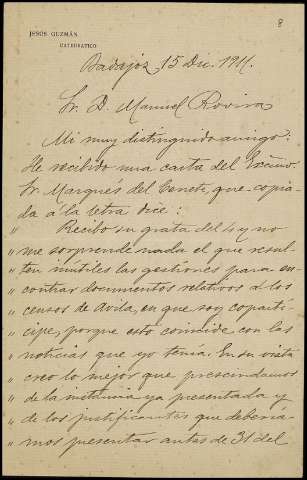 JESÚS GUZMÁN
CATEDRÁTICO
8
Badajoz 15 Dic. 1911.
Sr. D. Manuel Rovira
Mi muy distinguido amigo:
He recibido una carta del Excmo.
Sr. Marqués del Cenete, que copia-
da á la letra dice:
" Recibo su grata del 4 y no
" me sorprende nada el que resul-
" ten inútiles las gestiones para en-
" contrar documentos relativos á los
" censos de Avila, en que soy copartí-
" cipe, porque esto coincide con las
" noticias que yo tenia. En su vista
" creo lo mejor que prescindamos
" de la instancia ya presentada y
" de los justificantes que debería-
" mos presentar antes de 31 del